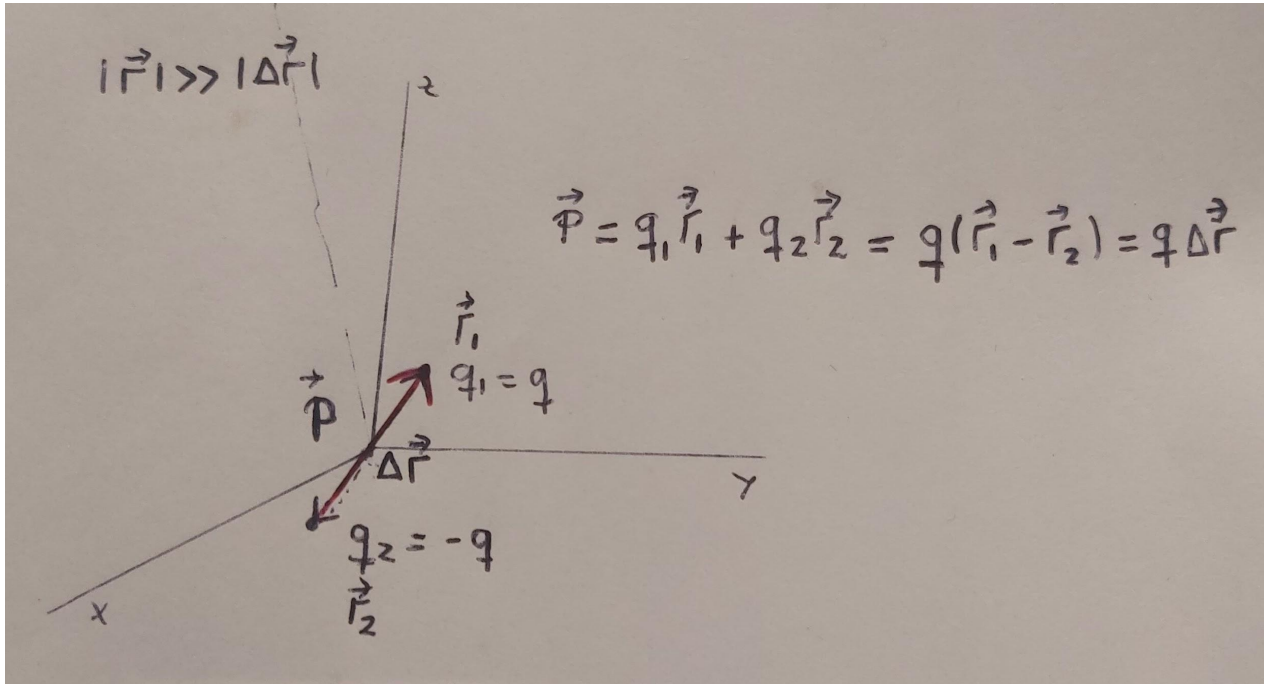 |r⃗| >> |Δr⃗|
z
p⃗ = q₁r⃗₁ + q₂r⃗₂ = q(r⃗₁ - r⃗₂) = qΔr⃗
r⃗₁
q₁ = q
p⃗
Δr⃗
y
q₂ = -q
r⃗₂
x